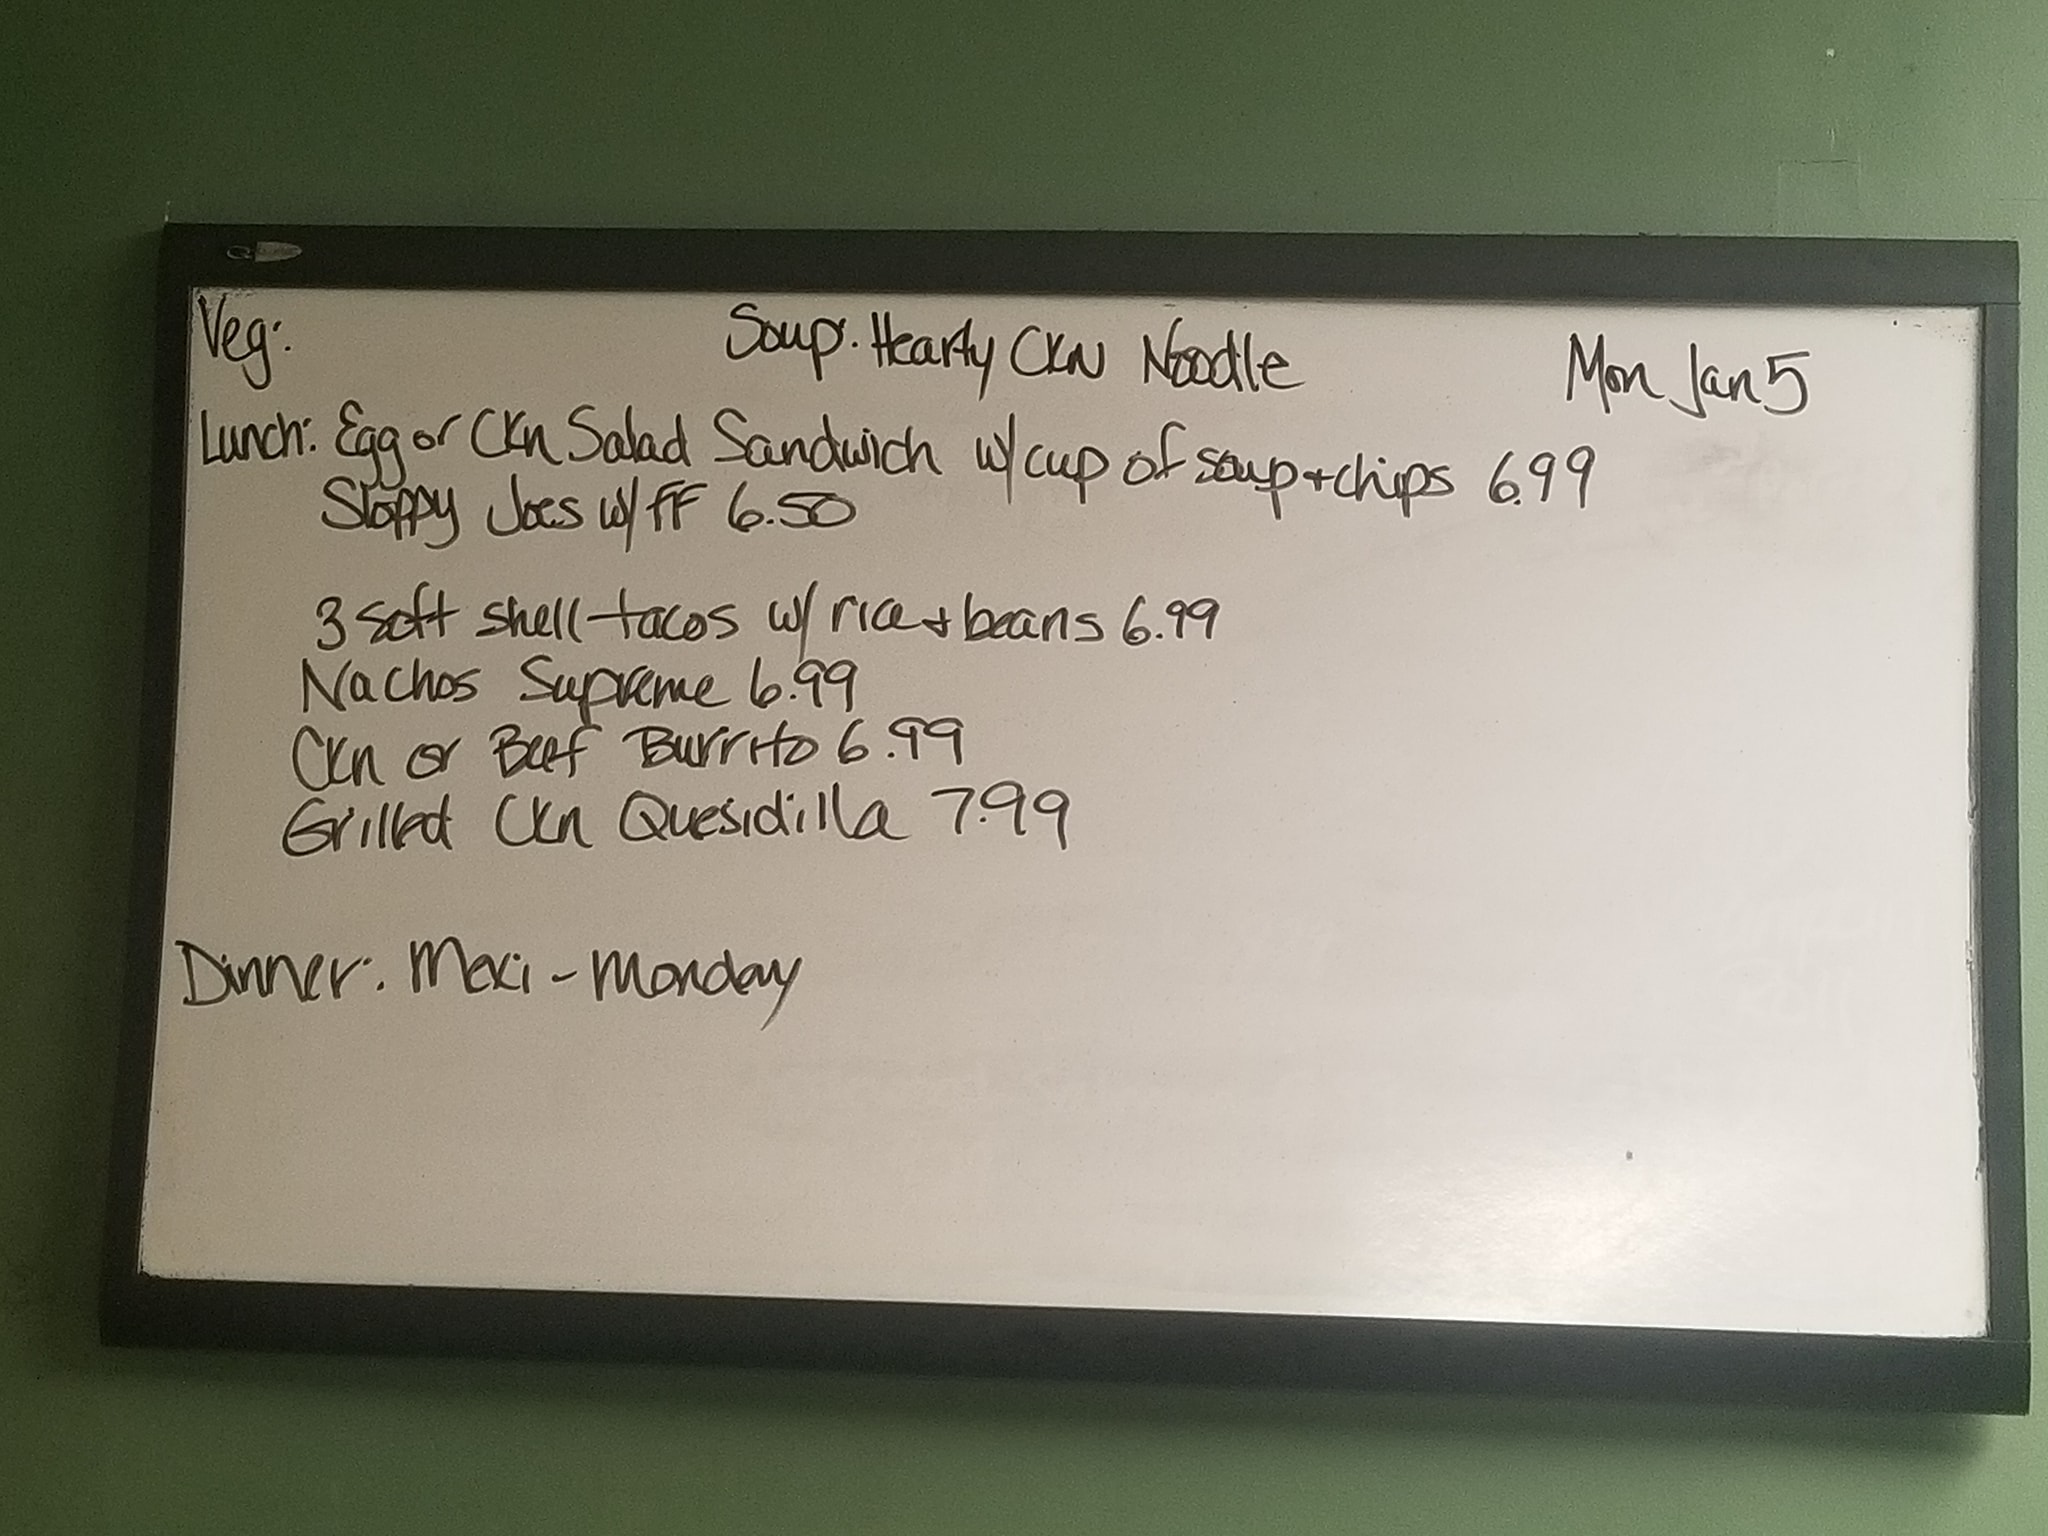 Veg: Soup: Hearty CKN Noodle Mon Jan 5
Lunch: Egg or CKn Salad Sandwich w/ cup of soup + chips 6.99
Sloppy Joes w/ FF 6.50
3 soft shell tacos w/ rice + beans 6.99
Nachos Supreme 6.99
CKn or Beef Burrito 6.99
Grilled CKn Quesidilla 7.99
Dinner: Mexi - Monday